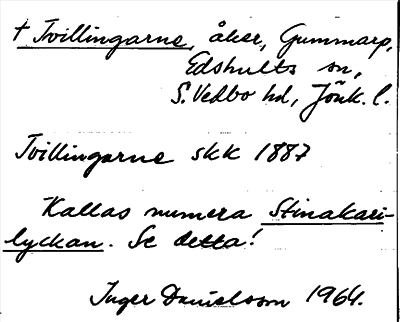 † Tvillingarne, åker, Gummarp,
Edshults sn,
S. Vedbo hd, Jönk. l.
Tvillingarne skk 1887
Kallas numera Stinakari-
lyckan. Se detta!
Inger Danielsson 1964.